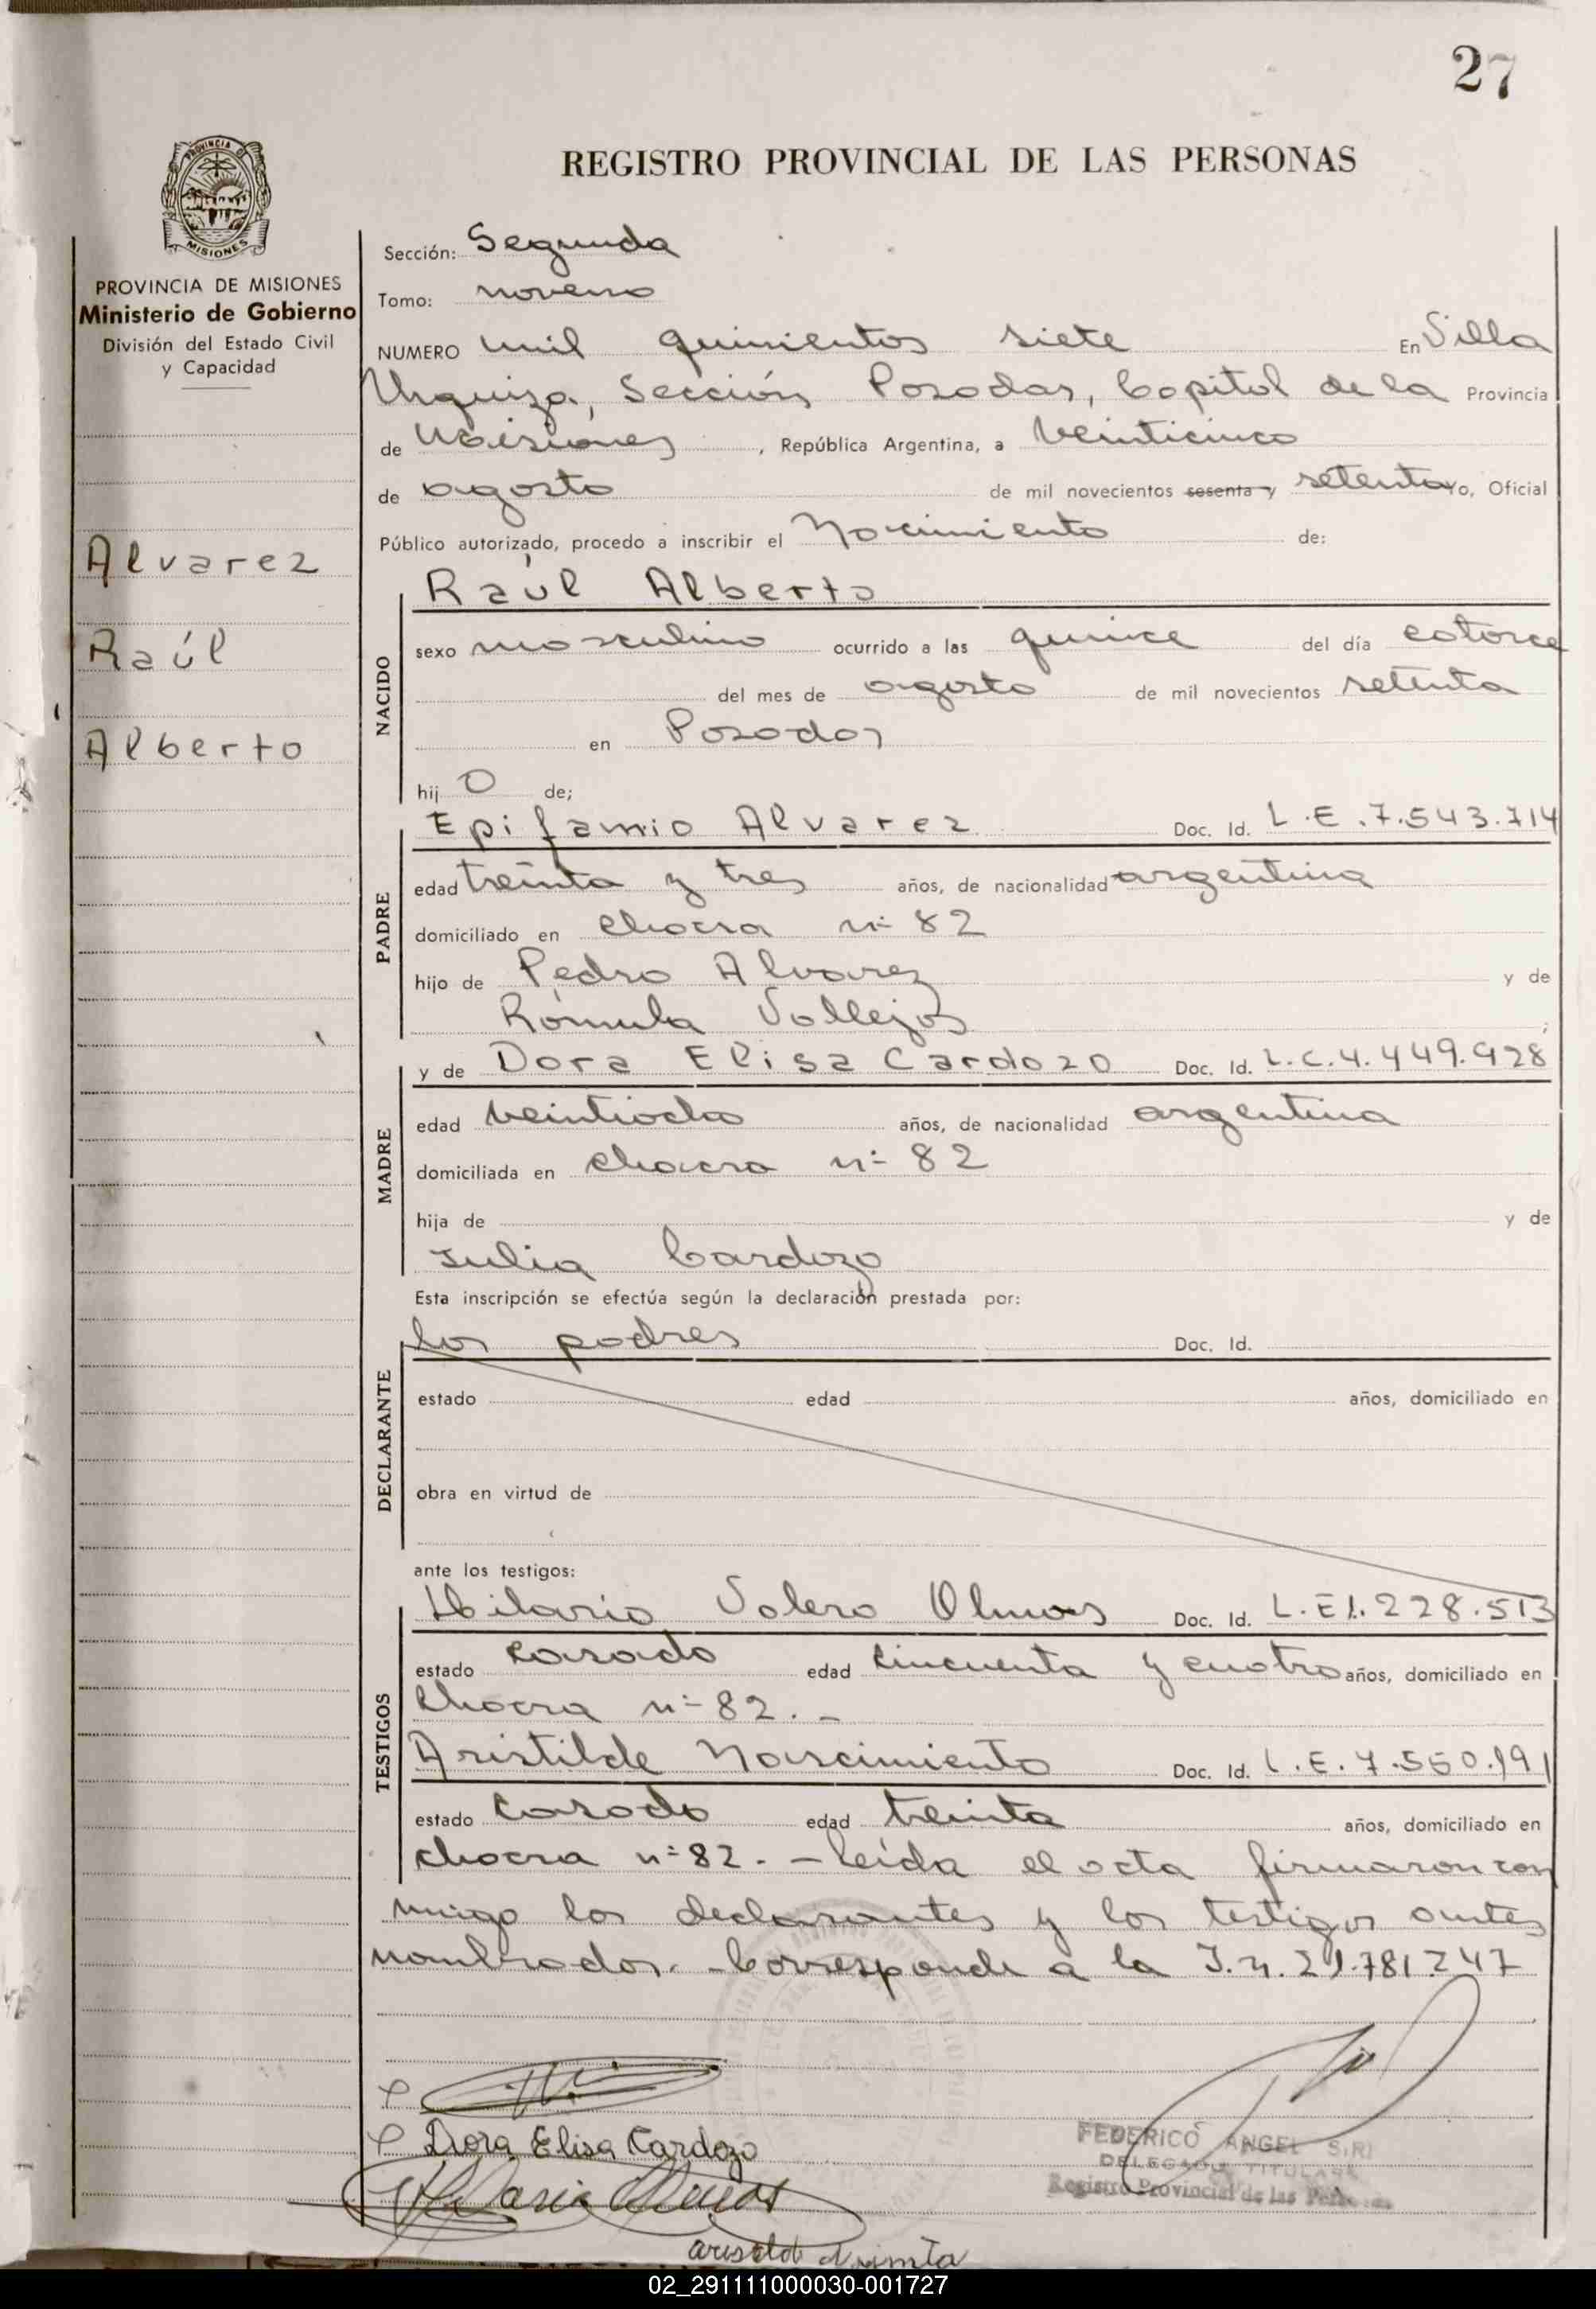 27
REGISTRO PROVINCIAL DE LAS PERSONAS
PROVINCIA DE MISIONES
PROVINCIA DE MISIONES
Ministerio de Gobierno
División del Estado Civil
y Capacidad
Alvarez
Raúl
Alberto
Sección: Segunda
Tomo: noveno
NUMERO mil quinientos siete En Villa
Urquiza, Sección Posadas, Capital de la Provincia
de Misiones, República Argentina, a veinticinco
de agosto de mil novecientos sesenta y setenta yo, Oficial
Público autorizado, procedo a inscribir el Nacimiento de:
NACIDO
Raúl Alberto
sexo masculino ocurrido a las quince del día catorce
del mes de agosto de mil novecientos setenta
en Posadas
hij o de;
PADRE
Epifanio Alvarez Doc. Id. L.E. 7.543.714
edad treinta y tres años, de nacionalidad argentina
domiciliado en chacra nº 82
hijo de Pedro Alvarez y de
Rómula Vallejos
MADRE
y de Dora Elisa Cardozo Doc. Id. L.C. 4.449.928
edad veintiocho años, de nacionalidad argentina
domiciliada en chacra nº 82
hija de y de
Julia Cardozo
Esta inscripción se efectúa según la declaración prestada por:
DECLARANTE
los padres Doc. Id.
estado edad años, domiciliado en
obra en virtud de
ante los testigos:
TESTIGOS
Hilario Valero Olmos Doc. Id. L.E 1.228.513
estado casado edad cincuenta y cuatro años, domiciliado en
chacra nº 82. -
Aristilde Nascimiento Doc. Id. L.E. 7.550.191
estado casado edad treinta años, domiciliado en
chacra nº 82. - leída el acta firmaron con
migo los declarantes y los testigos antes
nombrados. - Corresponde a la I.n. 21.781.247
Dora Elisa Cardozo
Hilario Olmos
FEDERICO ANGEL
DELEGADO TITULAR
Registro Provincial de las Personas
02_291111000030-001727